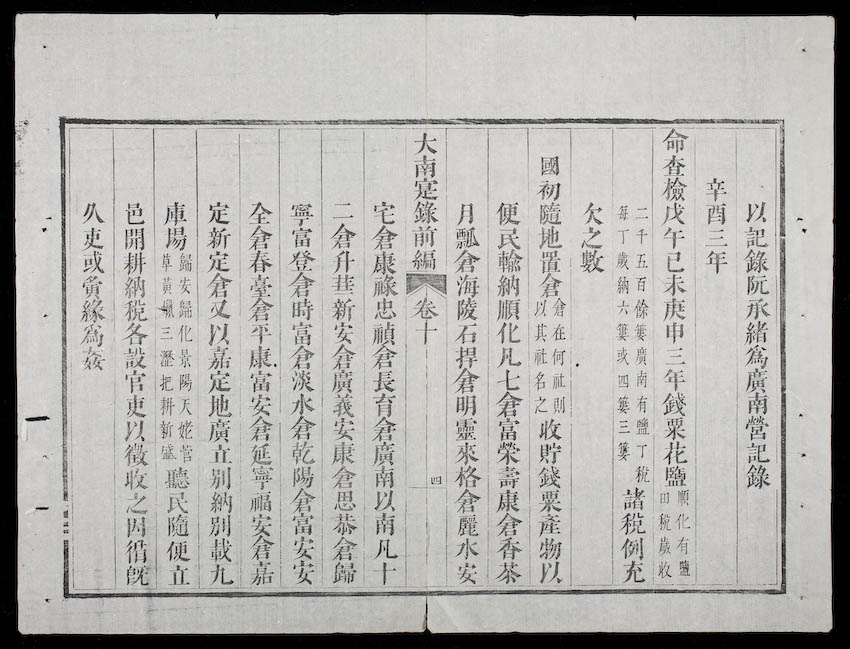 以記錄阮承緒爲廣南營記錄
辛酉三年
命查檢戊午己未庚申三年錢粟花鹽順化有鹽田稅歲收
二千五百餘簍廣南有鹽丁稅每丁歲納六簍或四簍三簍諸稅例充
欠之數
國初隨地置倉倉在何社則以其社名之收貯錢粟產物以
便民輸納順化凡七倉富榮壽康倉香茶
月瓢倉海陵石捍倉明靈來格倉麗水安
大南寔錄前編 卷十 四
宅倉康祿忠禎倉長育倉廣南以南凡十
二倉升新安倉廣義安康倉思恭倉歸
寧富登倉時富倉淡水倉乾陽倉富安安
全倉春臺倉平康富安倉延寧福安倉嘉
定新定倉又以嘉定地廣立別納別載九
庫場歸安歸化景陽天姥菅草黃臘三瀝把耕新盛聽民隨便立
邑開耕納稅各設官吏以徵收之因循旣
久吏或夤緣爲姦